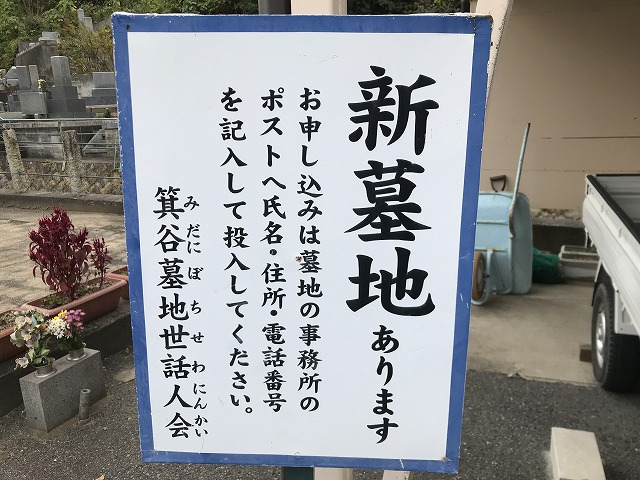 新墓地あります
お申し込みは墓地の事務所の
ポストへ氏名・住所・電話番号
を記入して投入してください。
箕谷墓地世話人会
みだにぼちせわにんかい